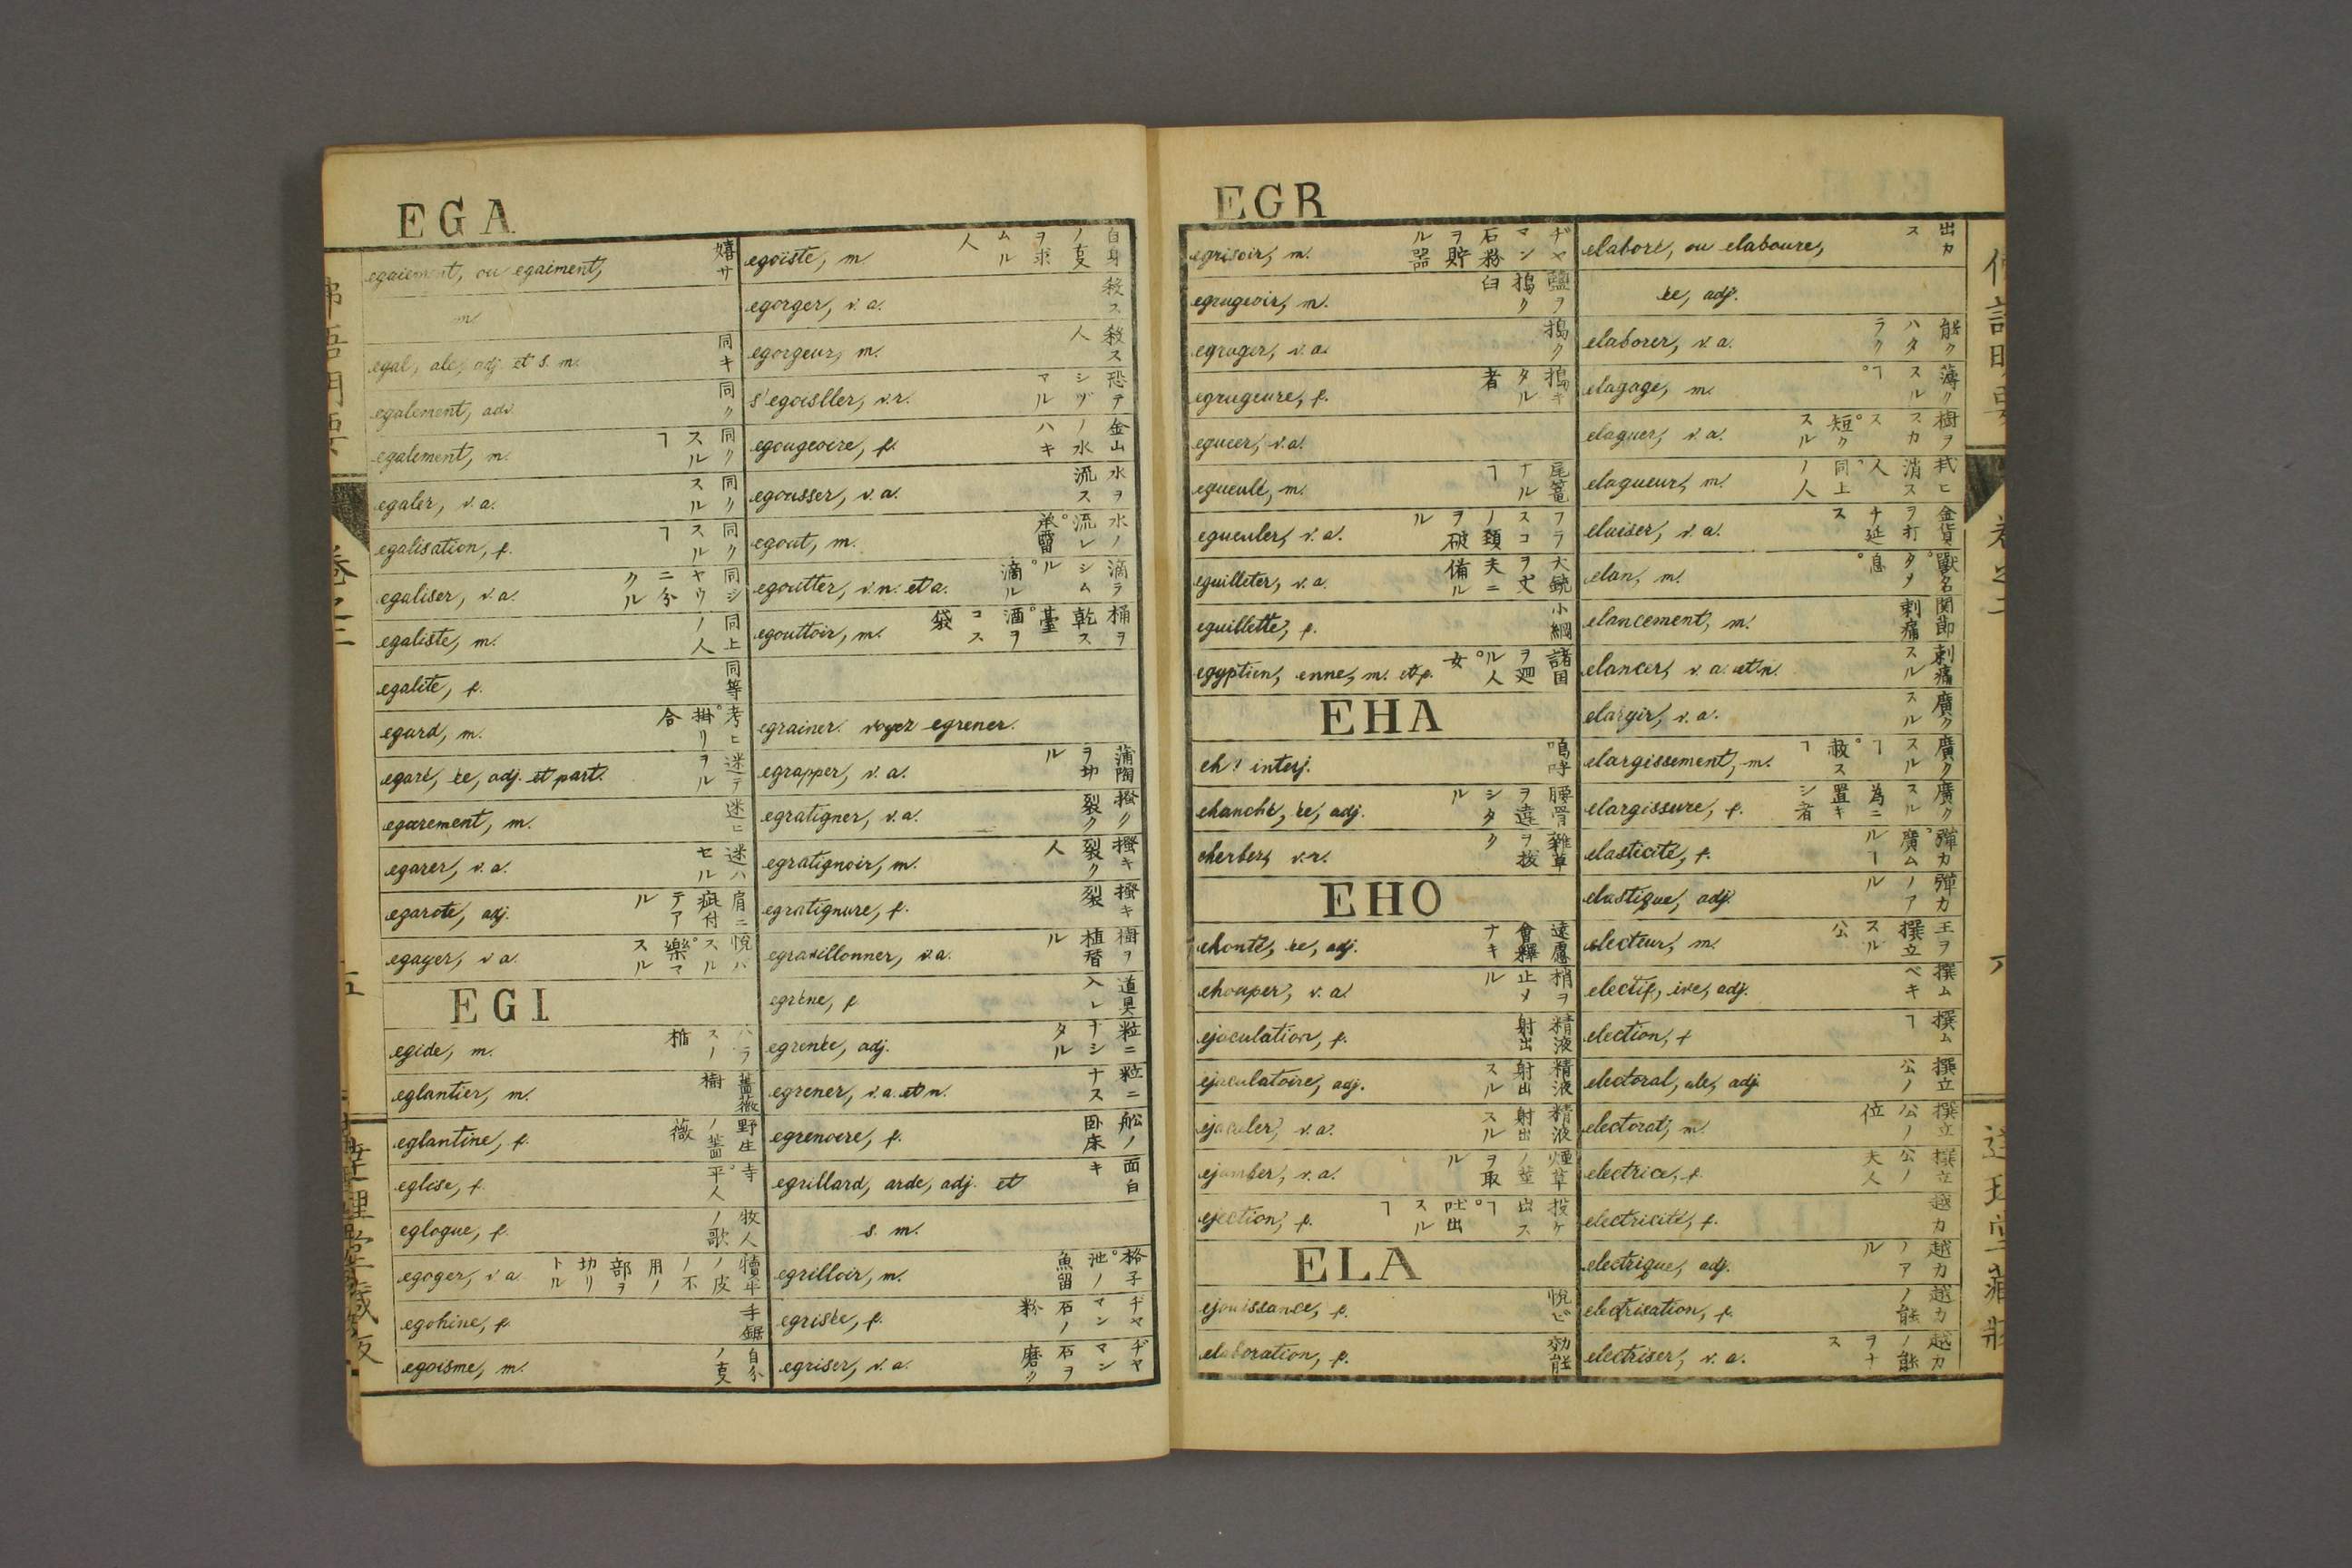 EGA
egaiement, ou egaiment, 嬉サ
m.
egal, ale, adj. et s. m. 同キ
egalement, adv. 同ク
egalement, m. 同クスルヿ
egaler, v. a. 同クスル
egalisation, f. 同クスルヿ
egaliser, v. a. 同シヤウニ分クル
egaliste, m. 同上ノ人
egalite, f. 同等
egard, m. 考ヒ。掛リ合
egaré, ée, adj. et part. 迷テヲル
egarement, m. 迷ヒ
egarer, v. a. 迷ハセル
egaroté, adj. 肩ニ疵付テアル
egayer, v. a. 悦バスル。樂マスル
EGI
egide, m. ハラスノ楯
eglantier, m. 薔薇樹
eglantine, f. 野生ノ薔薇
eglise, f. 寺。平人
eglogue, f. 牧人ノ歌
egoger, v. a. 犢牛ノ皮ノ不用ノ部ヲ切リトル
egohine, f. 手鋸
egoisme, m. 自分ノ叓
egoïste, m. 自身ノ叓ヲ求ムル人
egorger, v. a. 殺ス
egorgeur, m. 殺ス人
s'egosiller, v. r. 恐テシヅマル
egougeoire, f. 金山ノ水ハキ
egousser, v. a. 水ヲ流ス
egout, m. 水ノ流レ。承霤
egoutter, v. n. et a. 滴ラシムル。滴ル
egouttoir, m. 桶ヲ乾ス臺。酒ヲコス袋
egrainer. voyez egrener.
egrapper, v. a. 蒲陶ヲ切ル
egratigner, v. a. 搔ク裂ク
egratignoir, m. 搔キ裂ク人
egratignure, f. 搔キ裂
egravillonner, v. a. 樹ヲ植替ル
egrène, f. 道具入レ
egrenée, adj. 粒ニナシタル
egrener, v. a. et n. 粒ニナス
egrenoire, f. 舩ノ臥床
egrillard, arde, adj. et 面白キ
s. m.
egrilloir, m. 格子。池ノ魚留
egrisée, f. ヂヤマン石ノ粉
egriser, v. a. ヂヤマン石ヲ磨ク
EGR
egrisoir, m. ヂヤマン石粉ヲ貯ル器
egrugeoir, m. 鹽ヲ搗ク臼
egruger, v. a. 搗ク
egrugeure, f. 搗キタル者
egueer, v. a.
egueulé, m. 尾篭ナルヿ
egueuler, v. a. フラスコノ頚ヲ破ル
eguilleter, v. a. 大銃ヲ丈夫ニ備ル
eguillette, f. 小綱
egyptien, enne, m. et f. 諸国ヲ廻ル人。女
EHA
eh! interj. 嗚呼
ehanché, ée, adj. 腰骨ヲ違シタル
eherber, v. r. 雜草ヲ抜ク
EHO
ehonté, ée, adj. 遠慮會釋ナキ
ehouper, v. a. 梢ヲ止メル
ejaculation, f. 精液射出
ejaculatoire, adj. 精液射出スル
ejaculer, v. a. 精液射出スル
ejamber, v. a. 煙草ノ莖ヲ取ル
ejection, f. 投ケ出スヿ。吐出スルヿ
ELA
ejouissance, f. 悦ビ
elaboration, f. 効能
elaboré, ou elabouré, 出カス
ée, adj.
elaborer, v. a. 能クハタラク
elagage, m. 薄クスルヿ。
elaguer, v. a. 樹ヲスカス。短クスル
elagueur, m. 耗ヒ消ス人。同上ノ人
elaiser, v. a. 金貨ヲ打チ延ス
elan, m. 獸名。息。
elancement, m. 関節刺痛
elancer, v. a. et n. 刺痛スル
elargir, v. a. 廣クスル
elargissement, m. 廣クスルヿ。赦スヿ
elargissure, f. 廣クスル為ニ置キシ者
elasticité, f. 彈力。廣ムルヿ
elastique, adj. 彈力ノアル
electeur, m. 王ヲ撰立スル公
electif, ive, adj. 撰ムベキ
election, f. 撰ムヿ
electoral, ale, adj. 撰立公ノ
electorat, m. 撰立公ノ位
electrice, f. 撰立公ノ夫人
electricité, f. 越力
electrique, adj. 越力ノアル
electrisation, f. 越力ノ能
electriser, v. a. 越力ノ能ヲナス